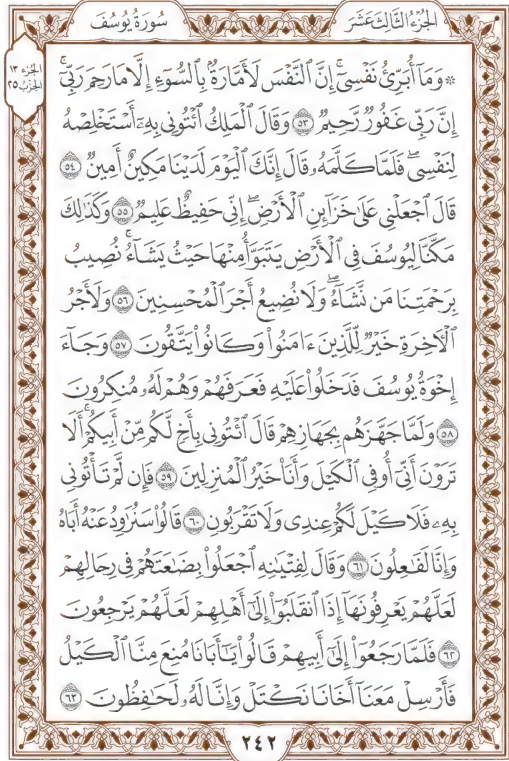 الجُزْءُ الثَّالِثَ عَشَرَ
سُورَةُ يُوسُفَ
الجزء ١٣
الحزب ٢٥
۞ وَمَآ أُبَرِّئُ نَفْسِىٓۚ إِنَّ ٱلنَّفْسَ لَأَمَّارَةُۢ بِٱلسُّوٓءِ إِلَّا مَا رَحِمَ رَبِّىٓۚ
إِنَّ رَبِّى غَفُورٌ رَّحِيمٌ ٥٣ وَقَالَ ٱلْمَلِكُ ٱئْتُونِى بِهِۦٓ أَسْتَخْلِصْهُ
لِنَفْسِىۖ فَلَمَّا كَلَّمَهُۥ قَالَ إِنَّكَ ٱلْيَوْمَ لَدَيْنَا مَكِينٌ أَمِينٌ ٥٤
قَالَ ٱجْعَلْنِى عَلَىٰ خَزَآئِنِ ٱلْأَرْضِۖ إِنِّى حَفِيظٌ عَلِيمٌ ٥٥ وَكَذَٰلِكَ
مَكَّنَّا لِيُوسُفَ فِى ٱلْأَرْضِ يَتَبَوَّأُ مِنْهَا حَيْثُ يَشَآءُۚ نُصِيبُ
بِرَحْمَتِنَا مَن نَّشَآءُۖ وَلَا نُضِيعُ أَجْرَ ٱلْمُحْسِنِينَ ٥٦ وَلَأَجْرُ
ٱلْأٓخِرَةِ خَيْرٌ لِّلَّذِينَ ءَامَنُوا۟ وَكَانُوا۟ يَتَّقُونَ ٥٧ وَجَآءَ
إِخْوَةُ يُوسُفَ فَدَخَلُوا۟ عَلَيْهِ فَعَرَفَهُمْ وَهُمْ لَهُۥ مُنكِرُونَ
٥٨ وَلَمَّا جَهَّزَهُم بِجَهَازِهِمْ قَالَ ٱئْتُونِى بِأَخٍ لَّكُم مِّنْ أَبِيكُمْۚ أَلَا
تَرَوْنَ أَنِّىٓ أُوفِى ٱلْكَيْلَ وَأَنَا۠ خَيْرُ ٱلْمُنزِلِينَ ٥٩ فَإِن لَّمْ تَأْتُونِى
بِهِۦ فَلَا كَيْلَ لَكُمْ عِندِى وَلَا تَقْرَبُونِ ٦٠ قَالُوا۟ سَنُرَٰوِدُ عَنْهُ أَبَاهُ
وَإِنَّا لَفَٰعِلُونَ ٦١ وَقَالَ لِفِتْيَٰنِهِ ٱجْعَلُوا۟ بِضَٰعَتَهُمْ فِى رِحَالِهِمْ
لَعَلَّهُمْ يَعْرِفُونَهَآ إِذَا ٱنقَلَبُوٓا۟ إِلَىٰٓ أَهْلِهِمْ لَعَلَّهُمْ يَرْجِعُونَ
٦٢ فَلَمَّا رَجَعُوٓا۟ إِلَىٰٓ أَبِيهِمْ قَالُوا۟ يَٰٓأَبَانَا مُنِعَ مِنَّا ٱلْكَيْلُ
فَأَرْسِلْ مَعَنَآ أَخَانَا نَكْتَلْ وَإِنَّا لَهُۥ لَحَٰفِظُونَ ٦٣
٢٤٢